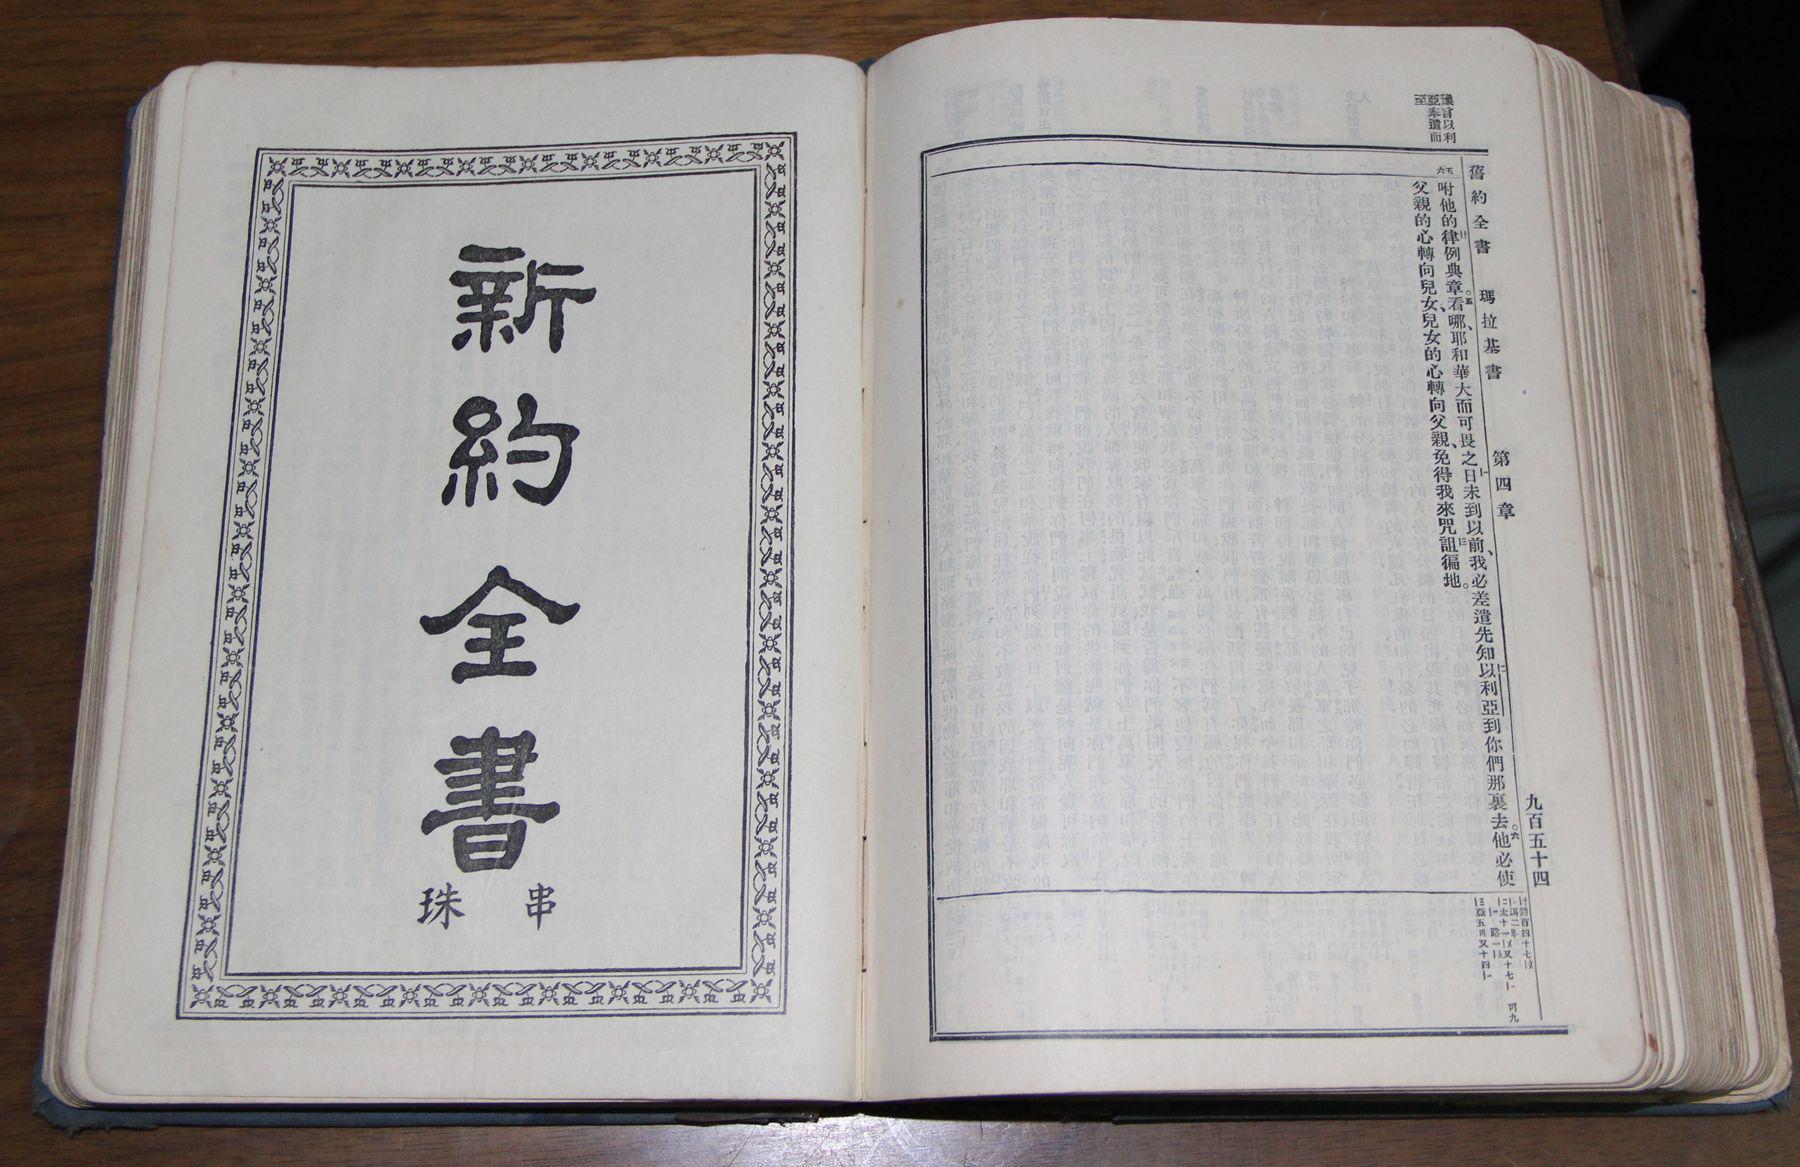 豫言以利
亞奉遣而
至
舊約全書 瑪拉基書 第四章 九百五十四
五 咐他的律例典章。看哪、耶和華大而可畏之日未到以前、我必差遣先知以利亞到你們那裏去。他必使
六 父親的心轉向兒女、兒女的心轉向父親、免得我來咒詛徧地。
新約全書
串珠